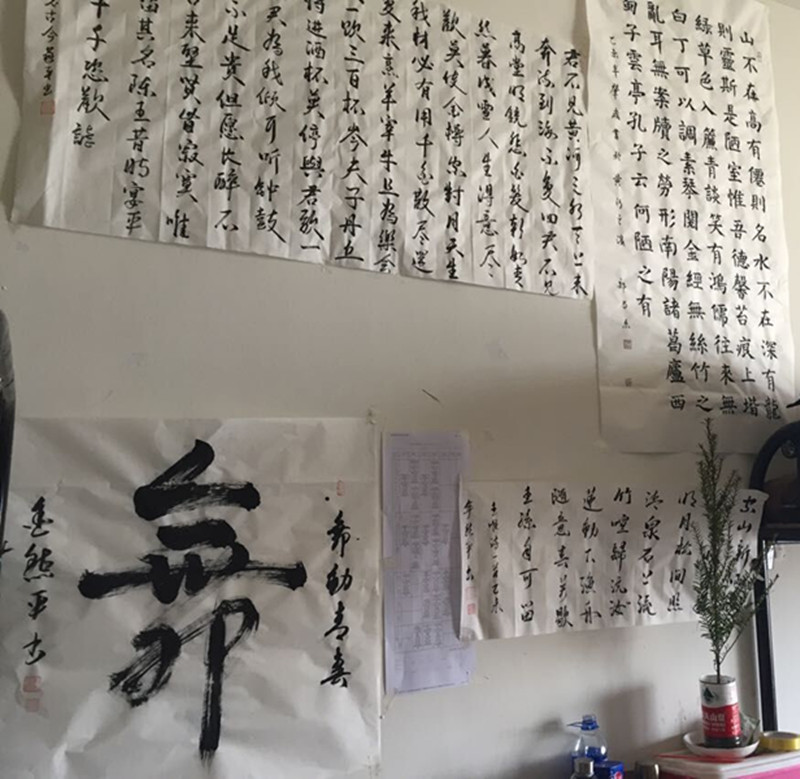 山不在高有僊則名水不在深有龍
則靈斯是陋室惟吾德馨苔痕上堦
綠草色入簾青談笑有鴻儒往來無
白丁可以調素琴閱金經無絲竹之
亂耳無案牘之勞形南陽諸葛廬西
蜀子雲亭孔子云何陋之有
君不見黃河之水天上来
奔流到海不復回君不見
高堂明鏡悲白髮朝如青
丝暮成雪人生得意尽
歡莫使金樽空對月天生
我材必有用千金散尽還
復来烹羊宰牛且為樂会
一飲三百杯岑夫子丹丘
进酒杯莫停與君歌一
君為我倾耳听鈡鼓
不足貴但愿长醉不
古来聖贤皆寂寞唯
留其名陈王昔時宴平
千恣歡謔
空山新
明月松间照
清泉石上流
竹喧歸浣女
蓮動下漁舟
随意春芳歇
王孫自可留
動青春
舞